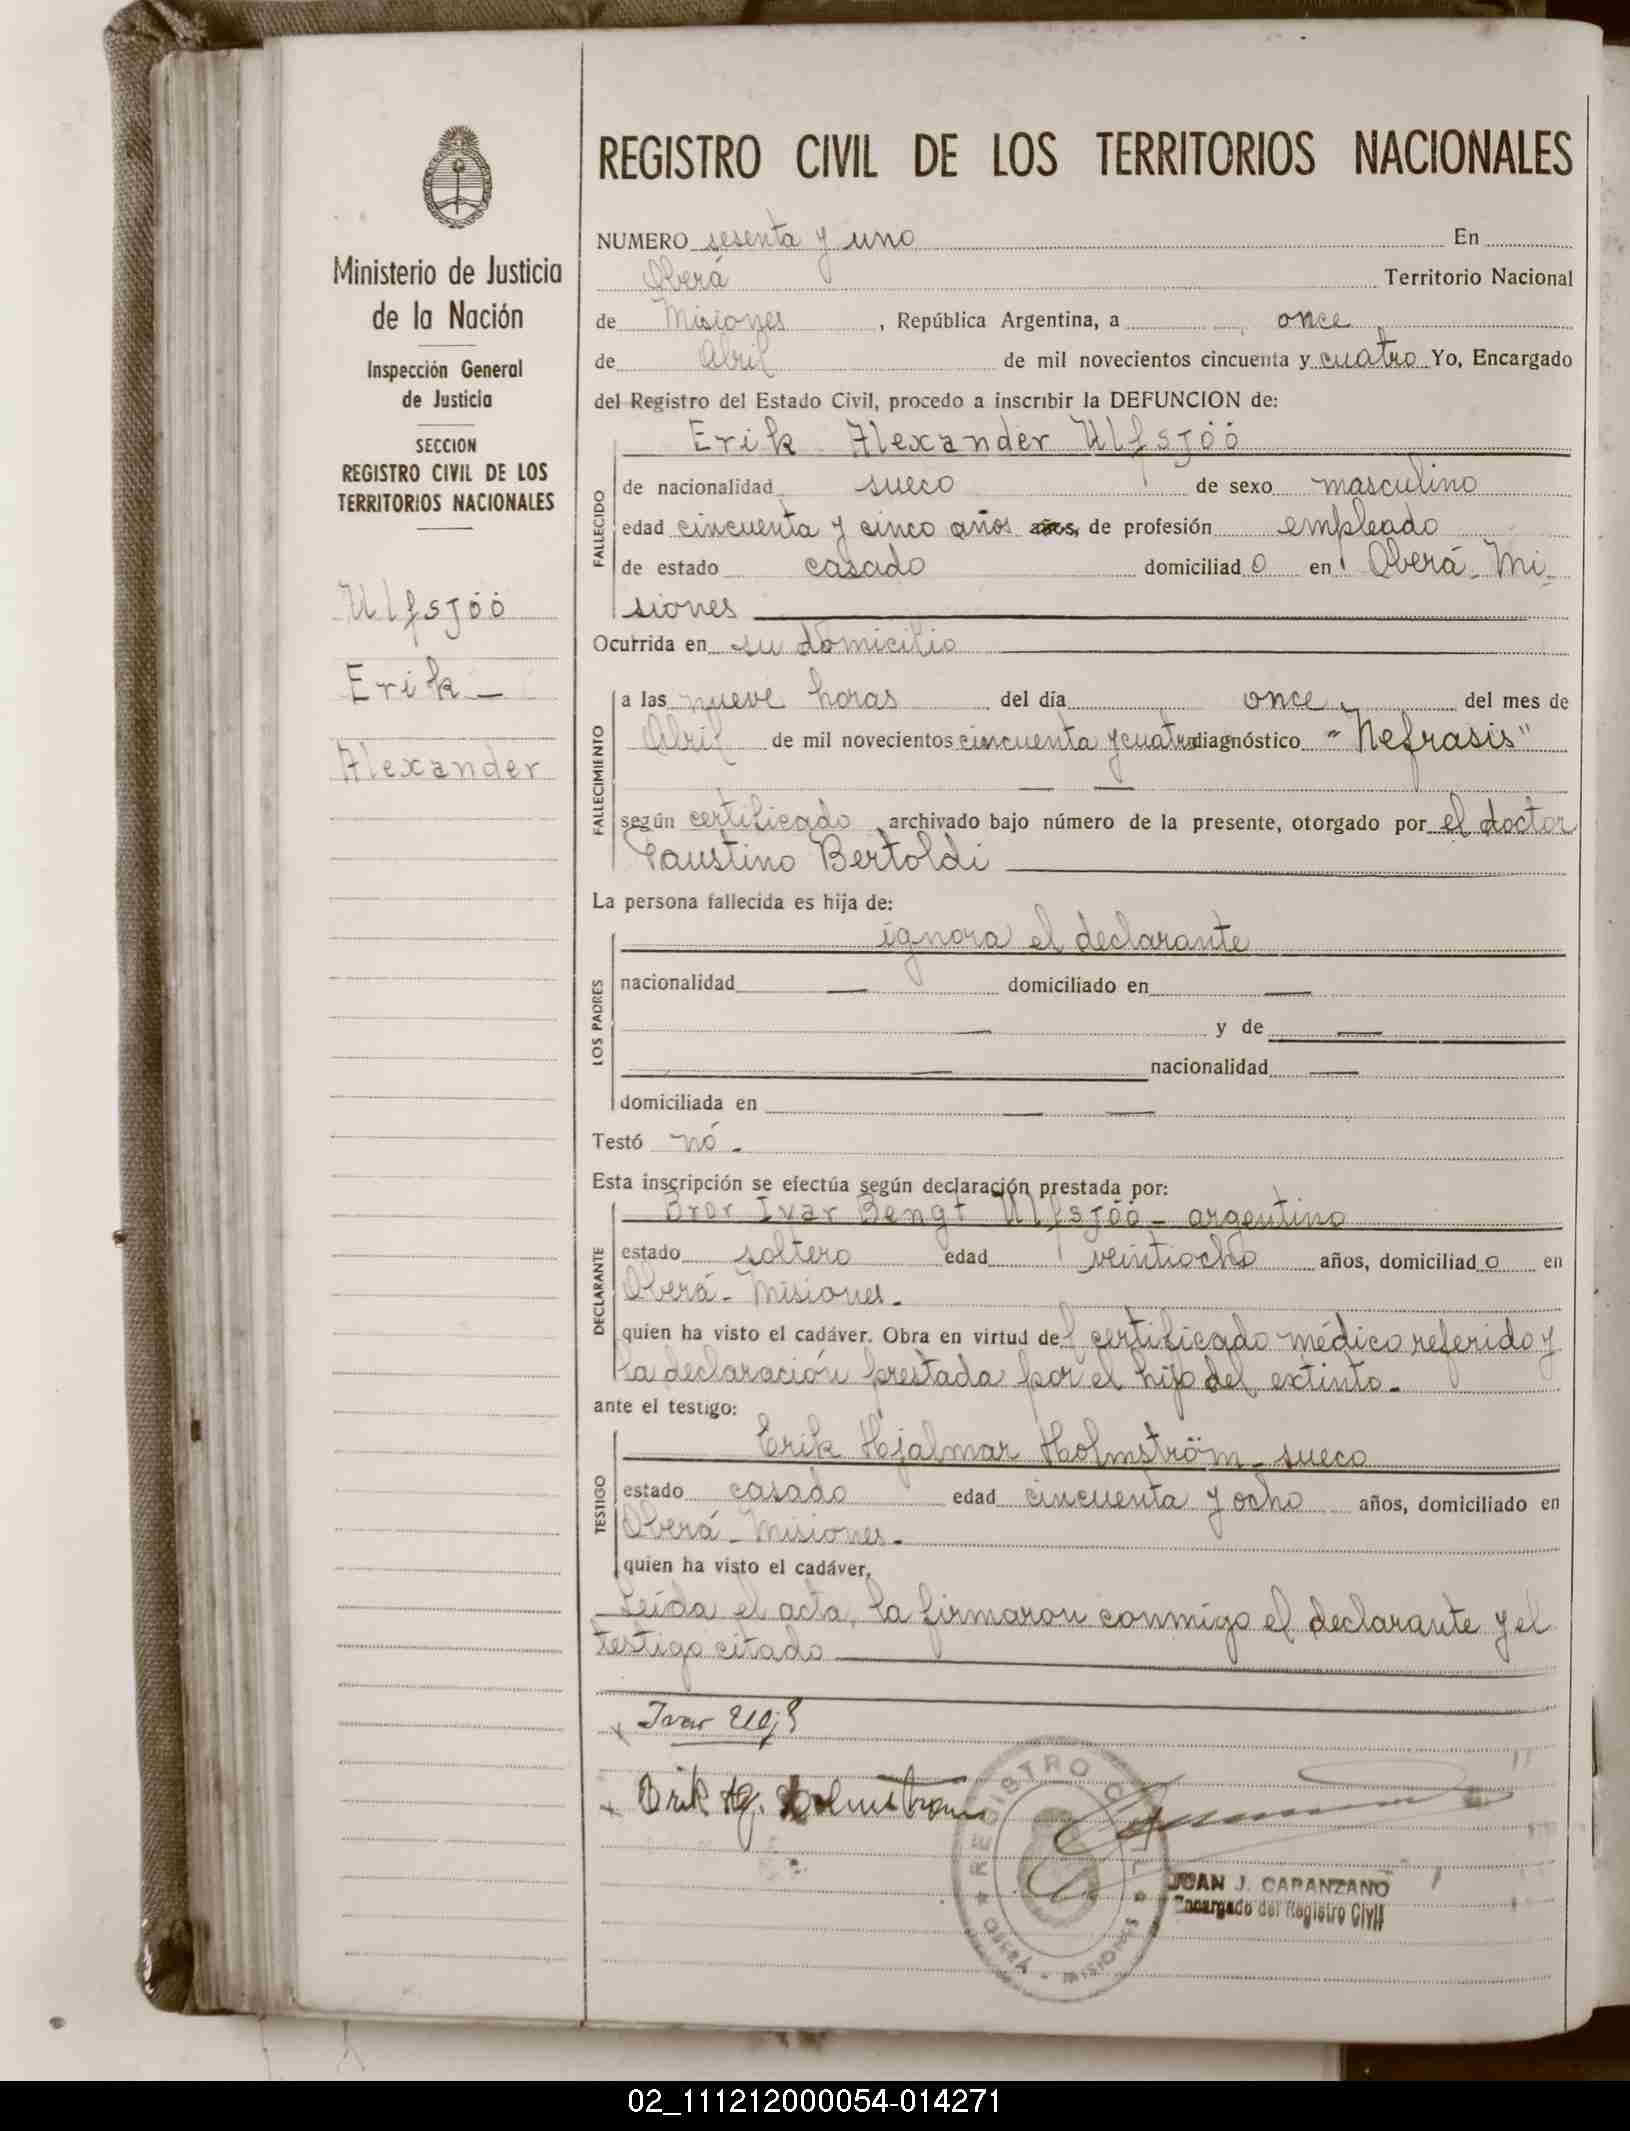 REGISTRO CIVIL DE LOS TERRITORIOS NACIONALES
Ministerio de Justicia
de la Nación
Inspección General
de Justicia
SECCION
REGISTRO CIVIL DE LOS
TERRITORIOS NACIONALES
Ulfsjöö
Erik -
Alexander
NUMERO sesenta y uno En
Oberá Territorio Nacional
de Misiones, República Argentina, a once
de Abril de mil novecientos cincuenta y cuatro Yo, Encargado
del Registro del Estado Civil, procedo a inscribir la DEFUNCION de:
Erik Alexander Ulfsjöö
FALLECIDO
de nacionalidad sueco de sexo masculino
edad cincuenta y cinco años años, de profesión empleado
de estado casado domiciliado en Oberá - Mi-
siones
Ocurrida en su domicilio
FALLECIMIENTO
a las nueve horas del día once del mes de
Abril de mil novecientos cincuenta y cuatro diagnóstico "Nefrasis"
según certificado, archivado bajo número de la presente, otorgado por el doctor
Faustino Bertoldi
La persona fallecida es hija de:
LOS PADRES
ignora el declarante
nacionalidad — domiciliado en —
— y de —
— nacionalidad —
domiciliada en — —
Testó nó.-
Esta inscripción se efectúa según declaración prestada por:
DECLARANTE
Bror Ivar Bengt Ulfsjöö - argentino
estado soltero edad veintiocho años, domiciliado en
Oberá - Misiones.-
quien ha visto el cadáver. Obra en virtud del certificado médico referido y
la declaración prestada por el hijo del extinto.-
ante el testigo:
TESTIGO
Erik Hjalmar Holmström - sueco
estado casado edad cincuenta y ocho años, domiciliado en
Oberá - Misiones.-
quien ha visto el cadáver,
Leída el acta, la firmaron conmigo el declarante y el
testigo citado
x Ivar
x Erik Hj. Holmström
REGISTRO CIVIL
OBERÁ - MISIONES
JUAN J. CAPANZANO
Encargado del Registro Civil
02_111212000054-014271